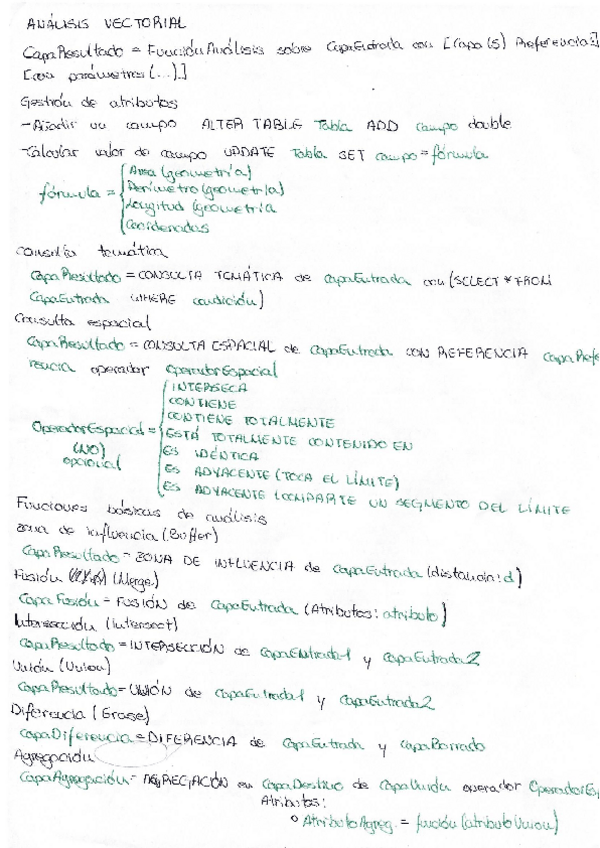 ANÁLISIS VECTORIAL
CapaResultado = FunciónAnálisis sobre CapaEntrada con [Capa(s) Referencia]
[con parámetros (...).]
Gestión de atributos
-Añadir un campo ALTER TABLE Tabla ADD campo double
-Calcular valor de campo UPDATE Tabla SET campo=fórmula
fórmula = { Área (geometría)
Perímetro (geometría)
Longitud (geometría
Coordenadas
Consulta temática
CapaResultado = CONSULTA TEMÁTICA de CapaEntrada con (SELECT * FROM
CapaEntrada WHERE condición)
Consulta espacial
CapaResultado = CONSULTA ESPACIAL de CapaEntrada CON REFERENCIA CapaRefe
rencia operador OperadorEspacial
OperadorEspacial = { INTERSECA
(NO)
opcional
CONTIENE
CONTIENE TOTALMENTE
ESTÁ TOTALMENTE CONTENIDO EN
ES IDÉNTICA
ES ADYACENTE (TOCA EL LÍMITE)
ES ADYACENTE (COMPARTE UN SEGMENTO DEL LÍMITE
Funciones básicas de análisis
Zona de influencia (Buffer)
CapaResultado = ZONA DE INFLUENCIA de CapaEntrada (distancia: d)
Fusión (Merge)
CapaFusión = FUSIÓN de CapaEntrada (Atributos: atributo)
Intersección (Intersect)
CapaResultado = INTERSECCIÓN de CapaEntrada1 y CapaEntrada2
Unión (Union)
CapaResultado = UNIÓN de CapaEntrada1 y CapaEntrada2
Diferencia (Erase)
CapaDiferencia = DIFERENCIA de CapaEntrada y CapaBorrado
Agregación
CapaAgregación = AGREGACIÓN en CapaDestino de CapaUnión operador OperadorEsp
Atributos:
° AtributoAgreg. = función (atributoUnion)